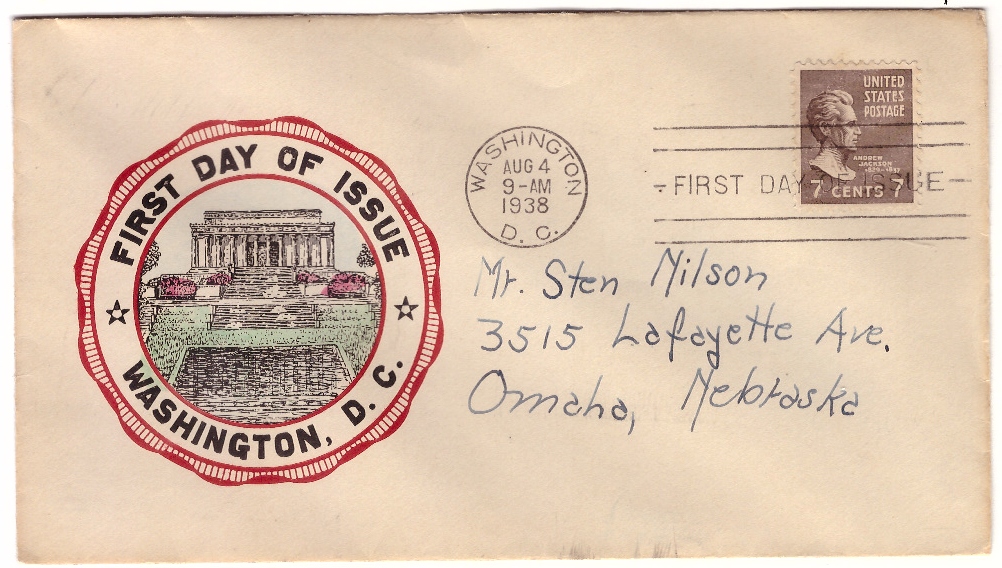 FIRST DAY OF ISSUE
WASHINGTON, D. C.
WASHINGTON
AUG 4
9-AM
1938
D. C.
UNITED
STATES
POSTAGE
ANDREW
JACKSON
1829-1837
7 CENTS 7
FIRST DAY OF ISSUE
Mr. Sten Nilson
3515 Lafayette Ave.
Omaha, Nebraska